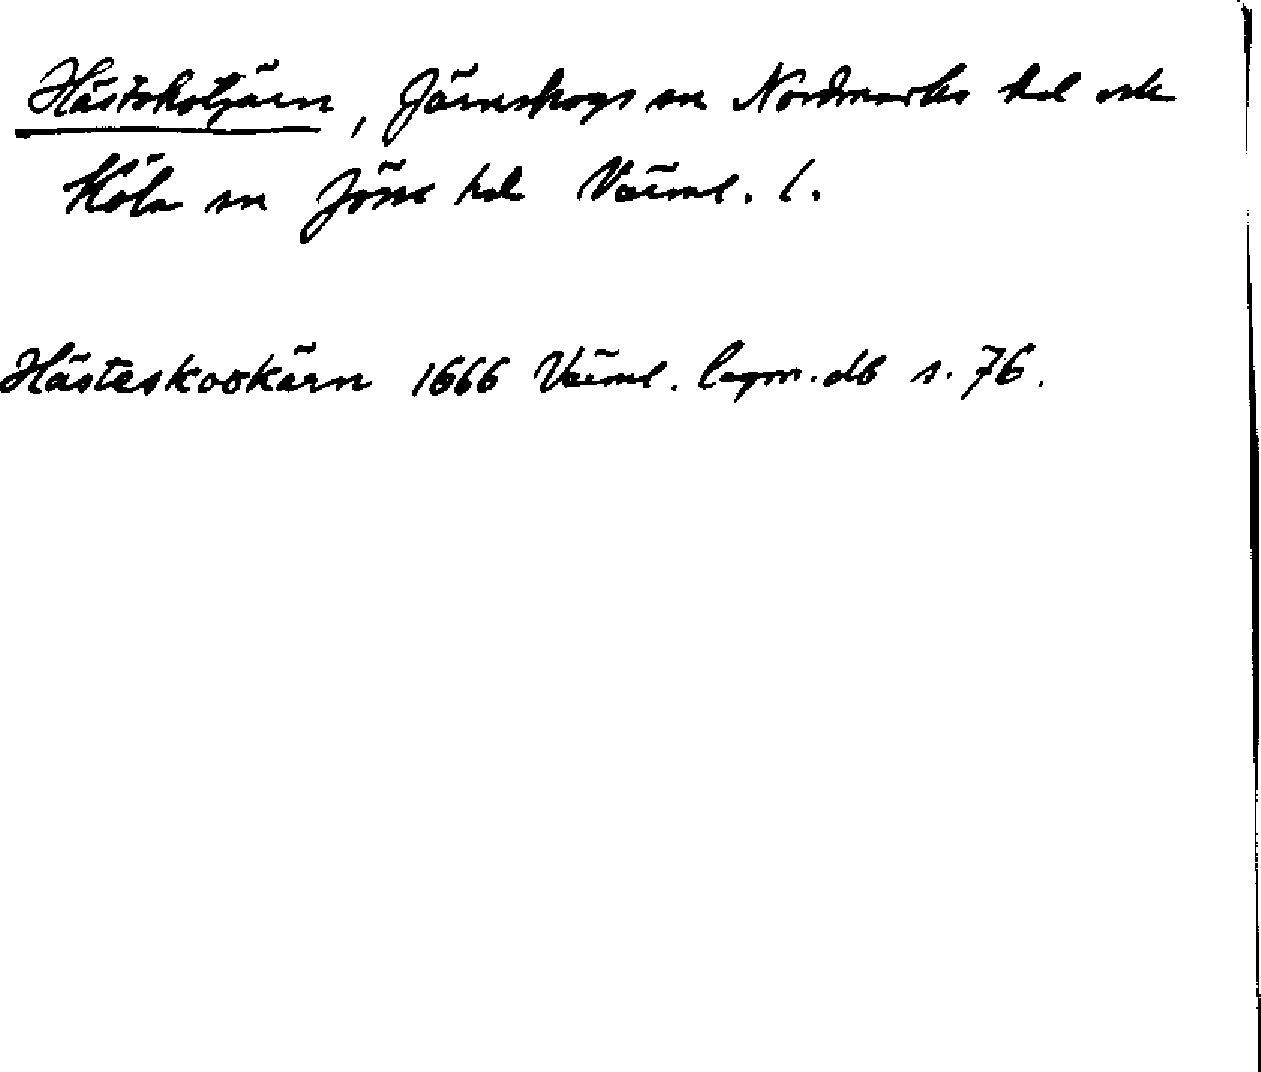 Hästskotjärn, Järnskogs sn Nordmarks hd och
Köla sn Jösse hd Värml. l.
Hästeskookärn 1666 Värml. lagm. db s. 76.